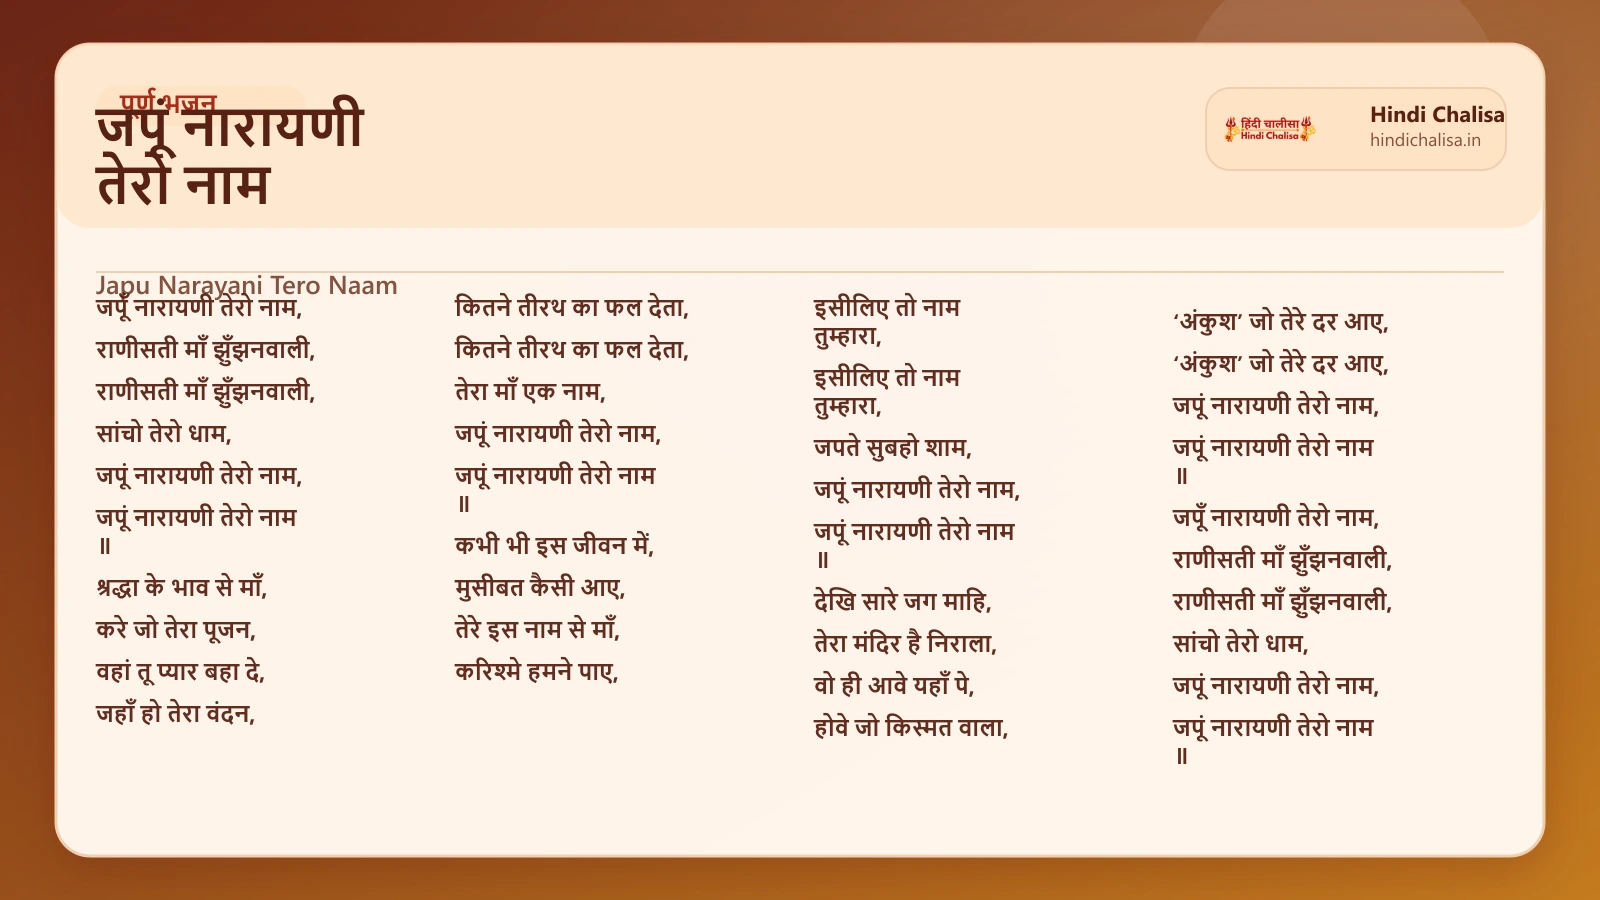 पूर्ण भजन
जपूं नारायणी
तेरो नाम
हिंदी चालीसा
Hindi Chalisa
Hindi Chalisa
hindichalisa.in
Japu Narayani Tero Naam
जपूँ नारायणी तेरो नाम,
राणीसती माँ झुँझनवाली,
राणीसती माँ झुँझनवाली,
सांचो तेरो धाम,
जपूं नारायणी तेरो नाम,
जपूं नारायणी तेरो नाम
॥
श्रद्धा के भाव से माँ,
करे जो तेरा पूजन,
वहां तू प्यार बहा दे,
जहाँ हो तेरा वंदन,
कितने तीरथ का फल देता,
कितने तीरथ का फल देता,
तेरा माँ एक नाम,
जपूं नारायणी तेरो नाम,
जपूं नारायणी तेरो नाम
॥
कभी भी इस जीवन में,
मुसीबत कैसी आए,
तेरे इस नाम से माँ,
करिश्मे हमने पाए,
इसीलिए तो नाम
तुम्हारा,
इसीलिए तो नाम
तुम्हारा,
जपते सुबहो शाम,
जपूं नारायणी तेरो नाम,
जपूं नारायणी तेरो नाम
॥
देखि सारे जग माहि,
तेरा मंदिर है निराला,
वो ही आवे यहाँ पे,
होवे जो किस्मत वाला,
‘अंकुश’ जो तेरे दर आए,
‘अंकुश’ जो तेरे दर आए,
जपूं नारायणी तेरो नाम,
जपूं नारायणी तेरो नाम
॥
जपूँ नारायणी तेरो नाम,
राणीसती माँ झुँझनवाली,
राणीसती माँ झुँझनवाली,
सांचो तेरो धाम,
जपूं नारायणी तेरो नाम,
जपूं नारायणी तेरो नाम
॥